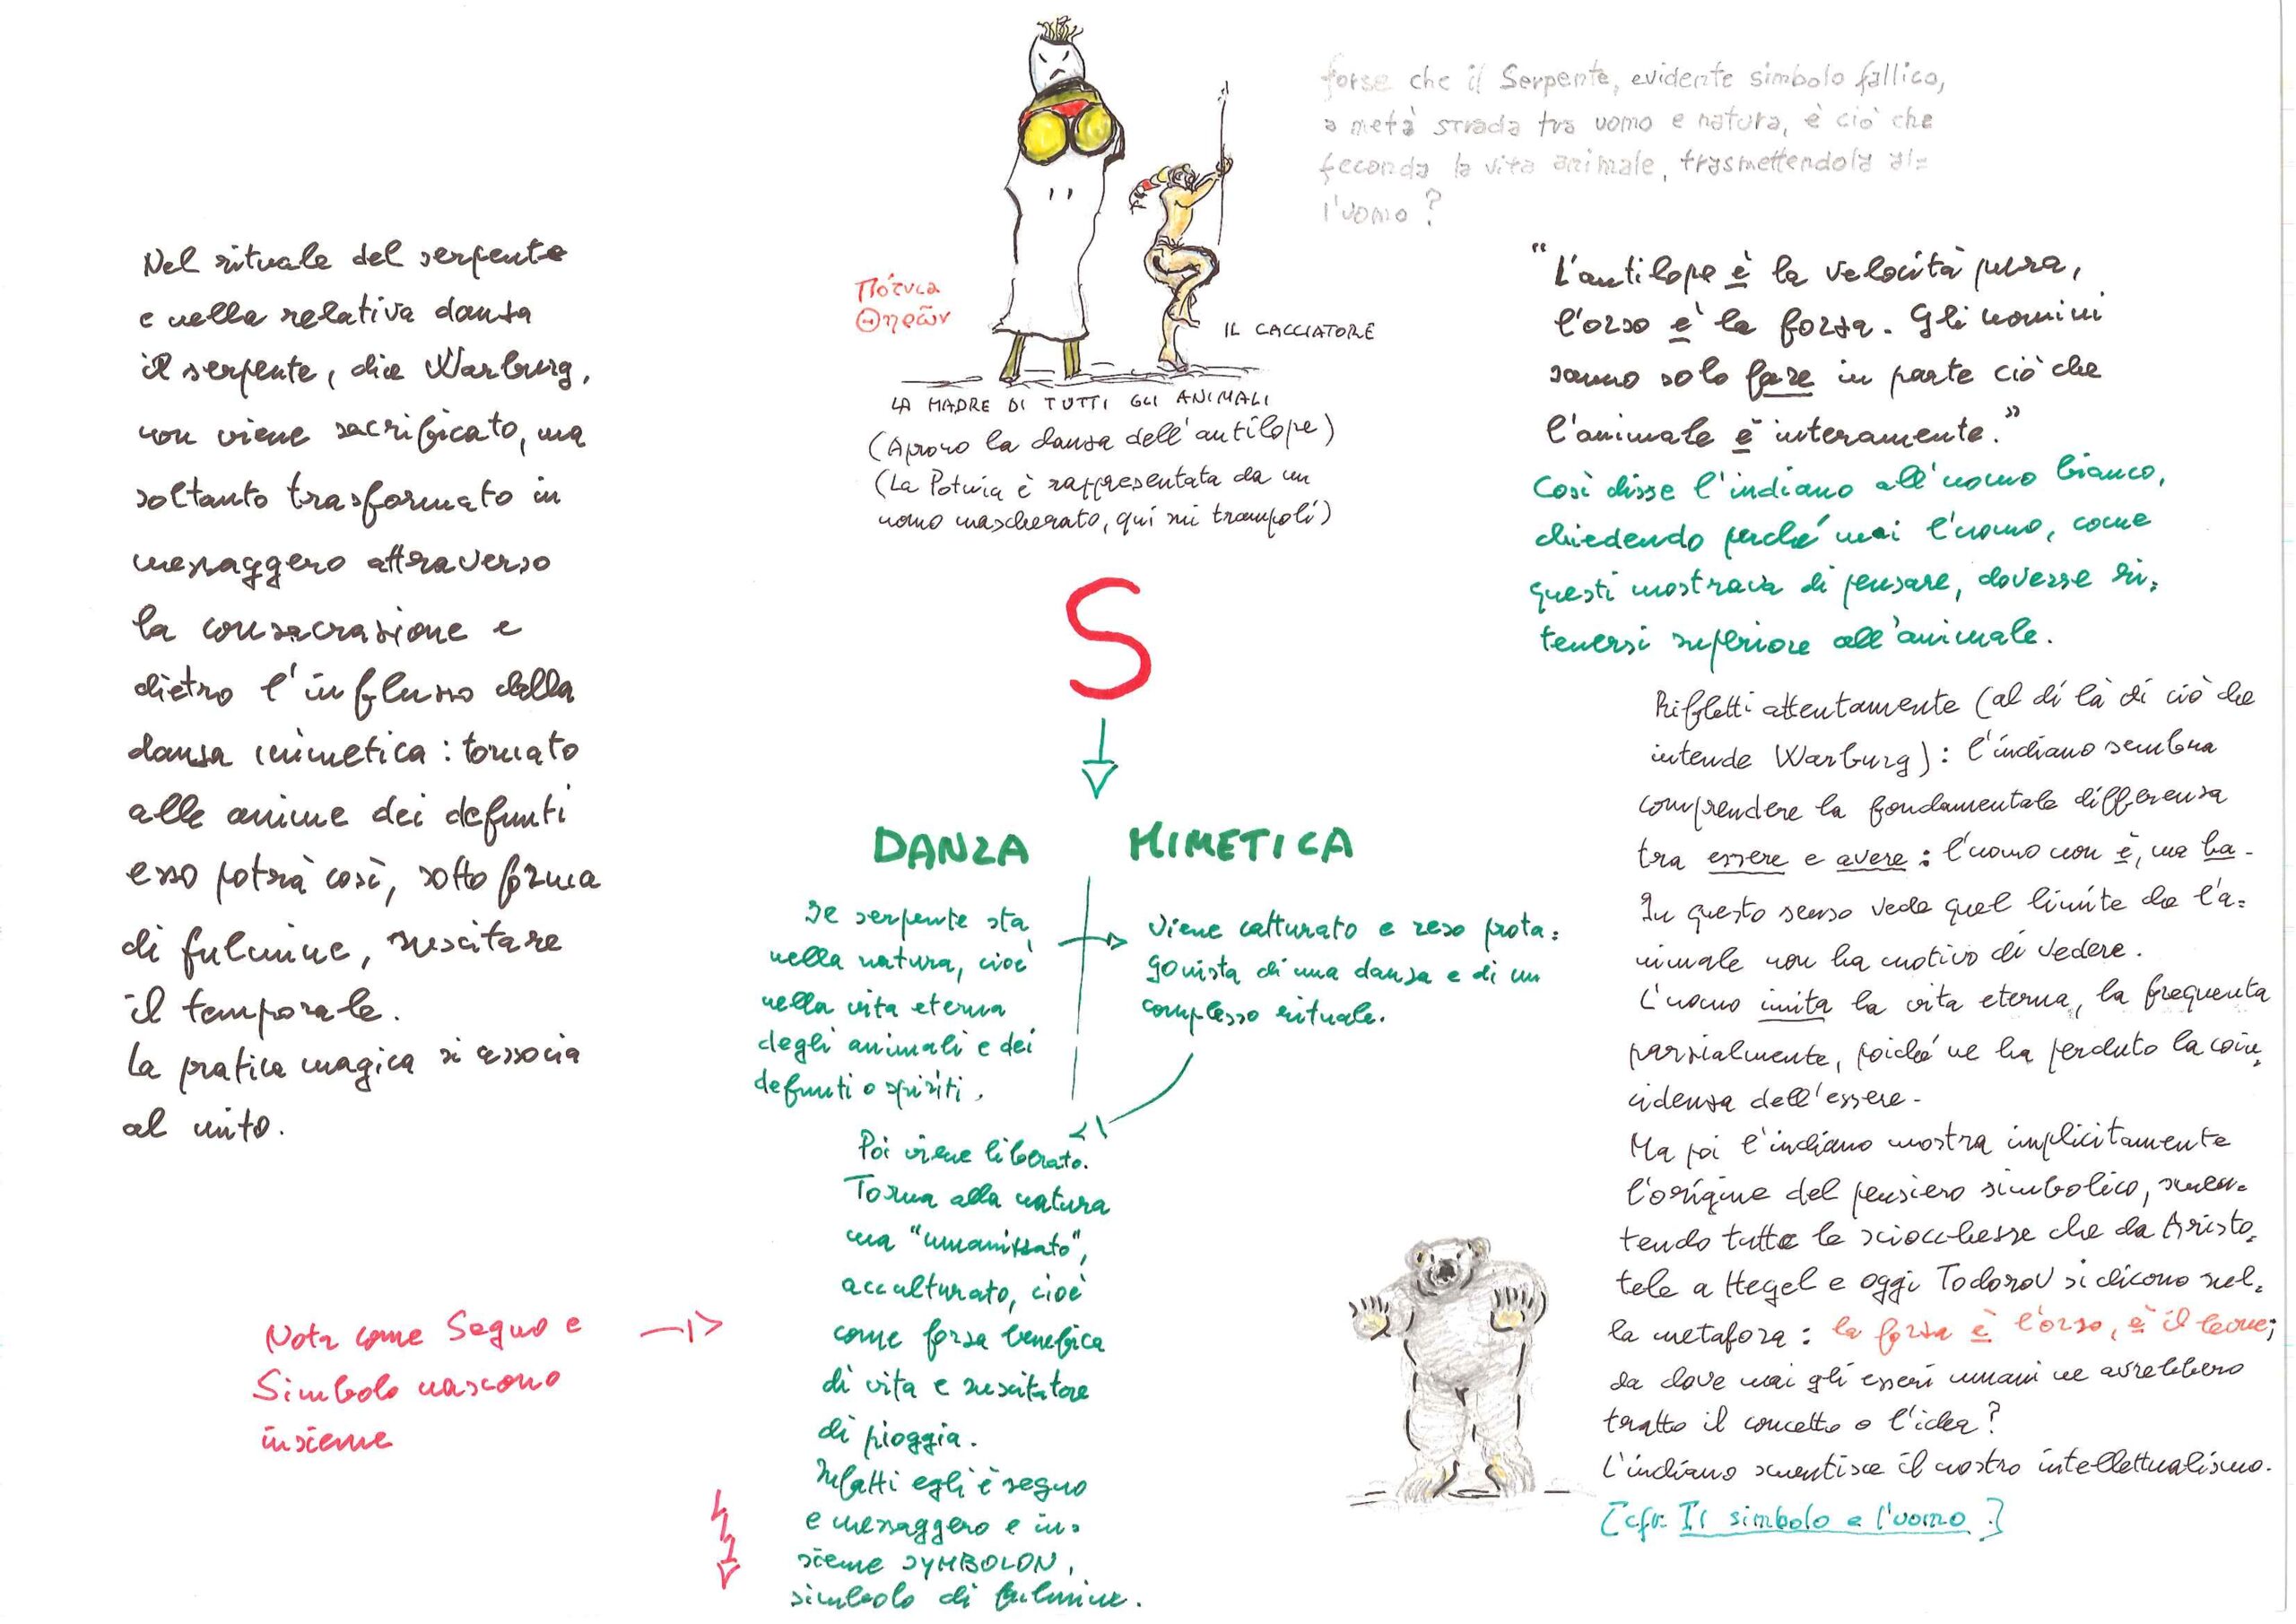 Nel rituale del serpente
e nella relativa danza
il serpente, dice Warburg,
non viene sacrificato, ma
soltanto trasformato in
messaggero attraverso
la consacrazione e
dietro l'influsso della
danza mimetica : tornato
alle anime dei defunti
esso potrà così, sotto forma
di fulmine, suscitare
il temporale.
La pratica magica si associa
al mito.
Nota come Segno e
Simbolo nascono
insieme
Πότνια
Θηρῶν
IL CACCIATORE
LA MADRE DI TUTTI GLI ANIMALI
(Aprono la danza dell'antilope)
(La Potnia è rappresentata da un
uomo mascherato, qui sui trampoli)
S
DANZA MIMETICA
Il serpente sta
nella natura, cioè
nella vita eterna
degli animali e dei
defunti o spiriti.
viene catturato e reso prota=
gonista di una danza e di un
complesso rituale.
Poi viene liberato.
Torna alla natura
ma "umanizzato",
acculturato, cioè
come forza benefica
di vita e suscitatore
di pioggia.
Infatti egli è segno
e messaggero e in=
sieme SYMBOLON,
simbolo di fulmine.
forse che il Serpente, evidente simbolo fallico,
a metà strada tra uomo e natura, è ciò che
feconda la vita animale, trasmettendola al=
l'uomo ?
"L'antilope è la velocità pura,
l'orso è la forza. Gli uomini
sanno solo fare in parte ciò che
l'animale è interamente."
Così disse l'indiano all'uomo bianco,
chiedendo perché mai l'uomo, come
questi mostrava di pensare, dovesse ri=
tenersi superiore all'animale.
Rifletti attentamente (al di là di ciò che
intende Warburg) : l'indiano sembra
comprendere la fondamentale differenza
tra essere e avere : l'uomo non è, ma ha.
In questo senso vede quel limite che l'a=
nimale non ha motivo di vedere.
L'uomo imita la vita eterna, la frequenta
parzialmente, poiché ne ha perduto la coin=
cidenza dell'essere.
Ma poi l'indiano mostra implicitamente
l'origine del pensiero simbolico, smen=
tendo tutte le sciocchezze che da Aristo=
tele a Hegel e oggi Todorov si dicono sul=
la metafora : la forza è l'orso, è il leone;
da dove mai gli esseri umani ne avrebbero
tratto il concetto o l'idea?
L'indiano smentisce il nostro intellettualismo.
[cfr. Il simbolo e l'uomo.]